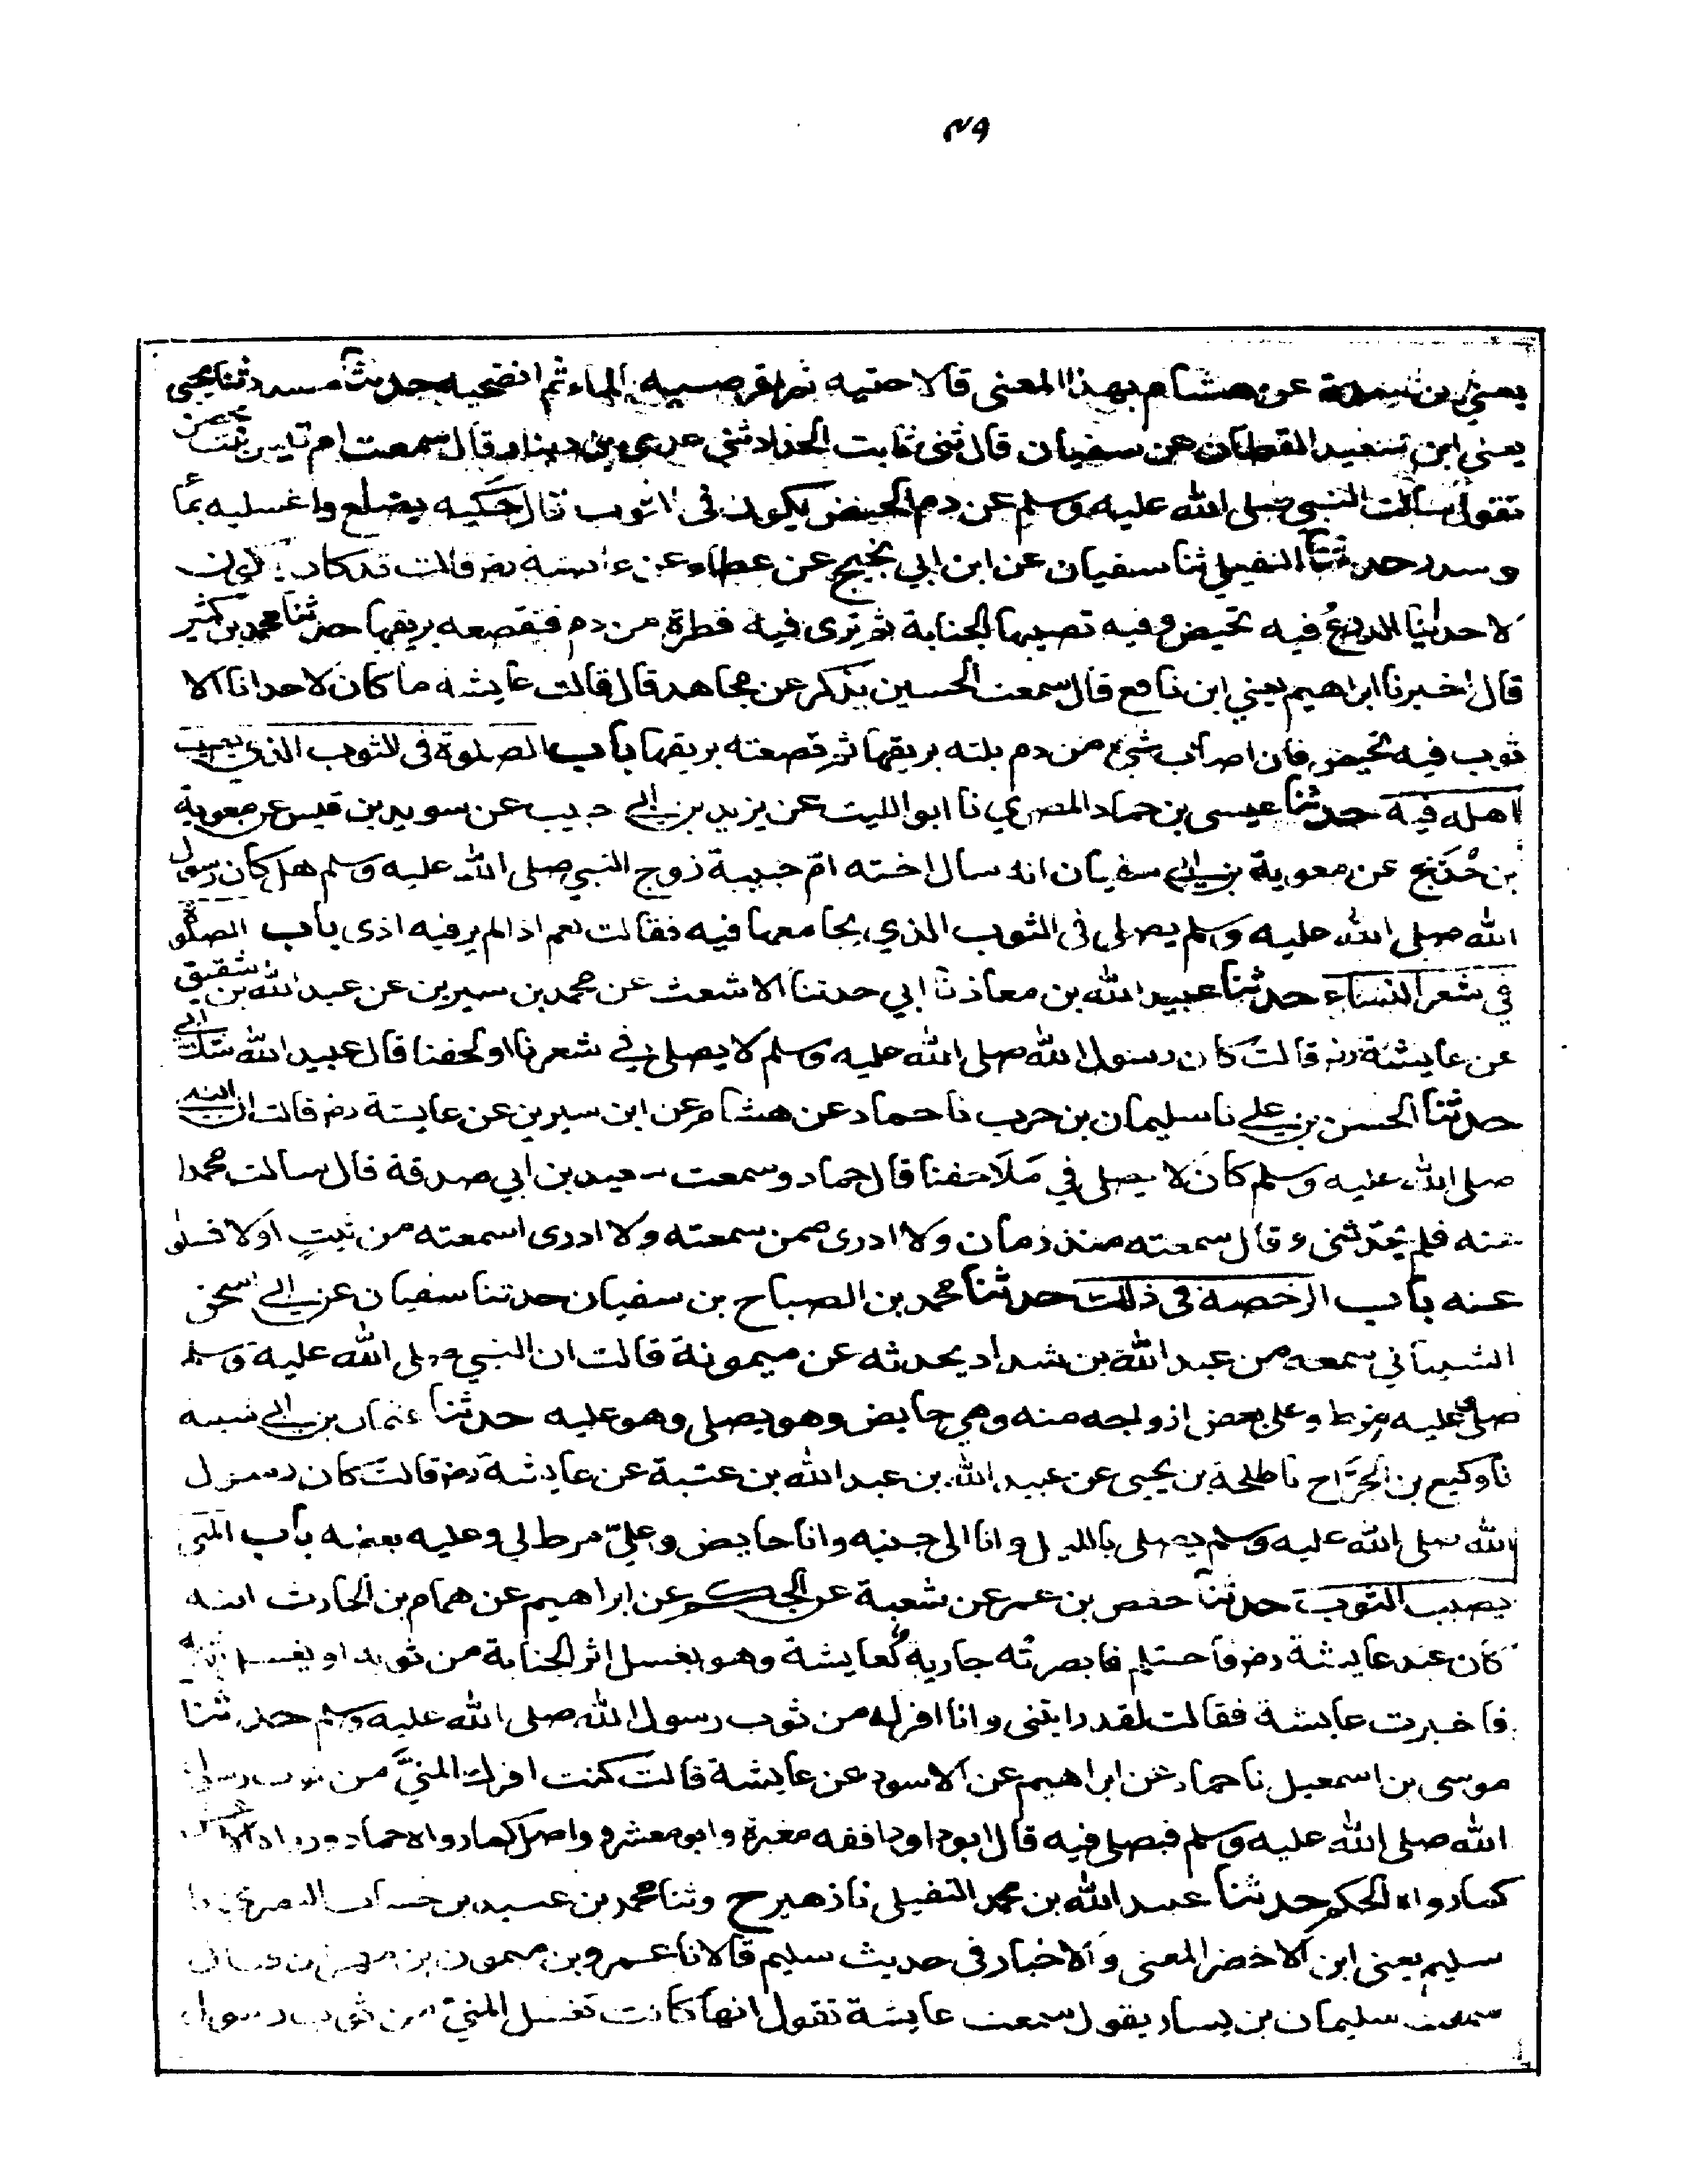 ٤٩
يعني بن عن هشام بهذا المعنى قالا حتيه ثم اقرصيه بالماء ثم انضحيه حدثنا مسدد ثنا يحيى
يعني ابن سعيد القطان عن سفيان قال ثنى ثابت الحداد ثني عدي بن دينار قال سمعت ام قيس بنت محصن
تقول سالت النبي صلى الله عليه وسلم عن دم الحيض يكون فى الثوب قال حكيه بضلع واغسليه بما
وسدر حدثنا النفيلي ثنا سفيان عن ابن ابي نجيح عن عطاء عن قالت قد كان يكون
لاحدانا الدرع فيه تحيض وفيه تصيبها الجنابة ثم ترى فيه قطرة من دم فتقصعه بريقها حدثنا محمد بن كثير
قال اخبرنا ابراهيم يعني ابن نافع قال سمعت الحسين يذكر عن مجاهد قال قالت عايشه ما كان لاحدانا الا
ثوب فيه تحيض فان اصاب شيئ من دم بلته بريقها ثم قصعته بريقها باب الصلوة فى الثوب الذي يصيب
اهله فيه حدثنا عيسى بن حماد المصري نا ابو الليث عن يزيد بن ابي حبيب عن سويد بن قيس عن معوية
بن خديج عن معوية بن ابي سفيان انه سال اخته ام حبيبة زوج النبي صلى الله عليه وسلم هل كان رسول
الله صلى الله عليه وسلم يصلى فى الثوب الذي يجامعها فيه فقالت نعم اذا لم ير فيه اذى باب الصلوة
في شعر النساء حدثنا عبيد الله بن معاذ نا ابي حدثنا الاشعث عن محمد بن سيرين عن عبد الله بن شقيق
عن عايشة رض قالت كان رسول الله صلى الله عليه وسلم لا يصلى في شعرنا او لحفنا قال عبيد الله شك ابي
حدثنا الحسن بن علي نا سليمان بن حرب نا حماد عن هشام عن ابن سيرين عن عايشة رض قالت ان النبي
صلى الله عليه وسلم كان لا يصلى في ملاحفنا قال حماد وسمعت سعيد بن ابي صدقة قال سالت محمدا
عنه فلم يحدثنى وقال سمعته منذ زمان ولا ادرى ممن سمعته ولا ادرى اسمعته من ثبت اولا فسلو
عنه باب الرخصة فى ذلك حدثنا محمد بن الصباح بن سفيان حدثنا سفيان عن ابي اسحق
الشيباني سمعه من عبد الله بن شداد يحدثه عن ميمونة قالت ان النبي صلى الله عليه وسلم
صلى وعليه مرط وعلى بعض ازواجه منه وهي حايض وهو يصلى وهو عليه حدثنا عثمان بن ابي شيبه
نا وكيع بن الجراح نا طلحة بن يحيى عن عبيد الله بن عبد الله بن عتبة عن عايشة رض قالت كان رسول
الله صلى الله عليه وسلم يصلى بالليل وانا الى جنبه وانا حايض وعلي مرط لي وعليه بعضه باب المنى
يصيب الثوب حدثنا حفص بن عمر عن شعبة عن الحكم عن ابراهيم عن همام بن الحارث انه
كان عند عايشة رض فاحتلم فابصرته جارية لعايشة وهو يغسل اثر الجنابة من ثوبه او يغسل ثوبه
فاخبرت عايشة فقالت لقد رايتنى وانا افركه من ثوب رسول الله صلى الله عليه وسلم حدثنا
موسى بن اسمعيل نا حماد عن ابراهيم عن الاسود عن عايشة قالت كنت افرك المني من ثوب رسول
الله صلى الله عليه وسلم فيصلى فيه قال ابو داود افقه مغيرة وابو معشر و واصل كما رواه حماد ورواه
كما رواه الحكم حدثنا عبد الله بن محمد النفيلى نا زهير ح وثنا محمد بن عبيد بن حساب البصري نا
سليم يعنى ابن الاخضر المعنى والاخبار فى حديث سليم قالا نا عمرو بن ميمون بن مهران قال
سمعت سليمان بن يسار يقول سمعت عايشة تقول انها كانت تغسل المني من ثوب رسول